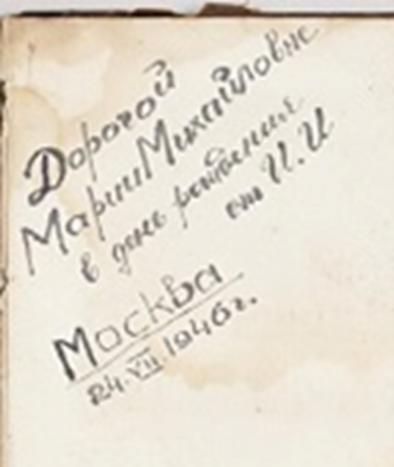 Дорогой
Марии Михайловне
в день рождения
от И.И
Москва
24.VII.1946г.